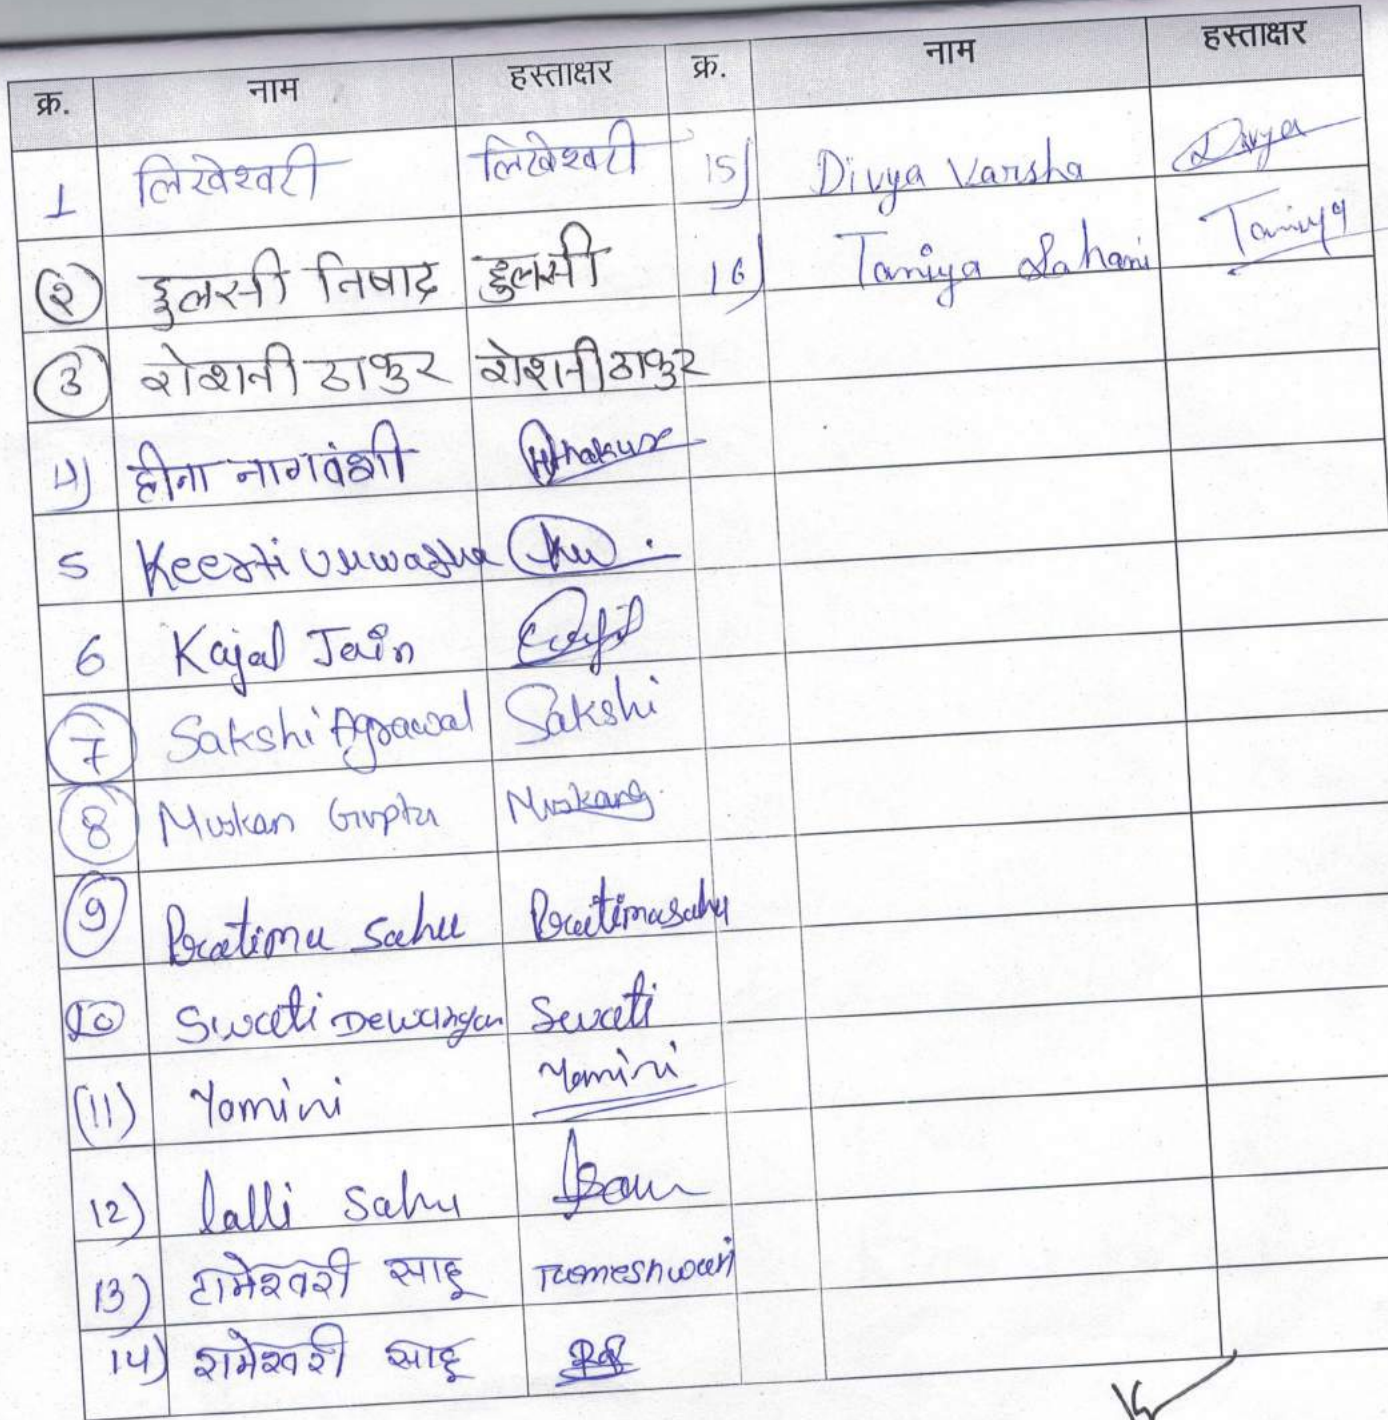 क्र. नाम हस्ताक्षर क्र. नाम हस्ताक्षर
1 लिखेश्वरी लिखेश्वरी 15) Divya Varsha Divya
२ हुलसी निषाद हुलसी 16) Taniya Sahani Taniya
3 रोशनी ठाकुर रोशनी ठाकुर
4) हीना नागवंशी Hthakur
5 Keerti Urwasha
6 Kajal Jain
7 Sakshi Agrawal Sakshi
8 Muskan Gupta Muskang
9 Pratima Sahu Pratimasahu
10 Swati Dewangan Swati
(11) Yamini Yamini
12) lalli Sahu
13) टामेश्वरी साहू Tameshwari
14) रामेश्वरी साहू